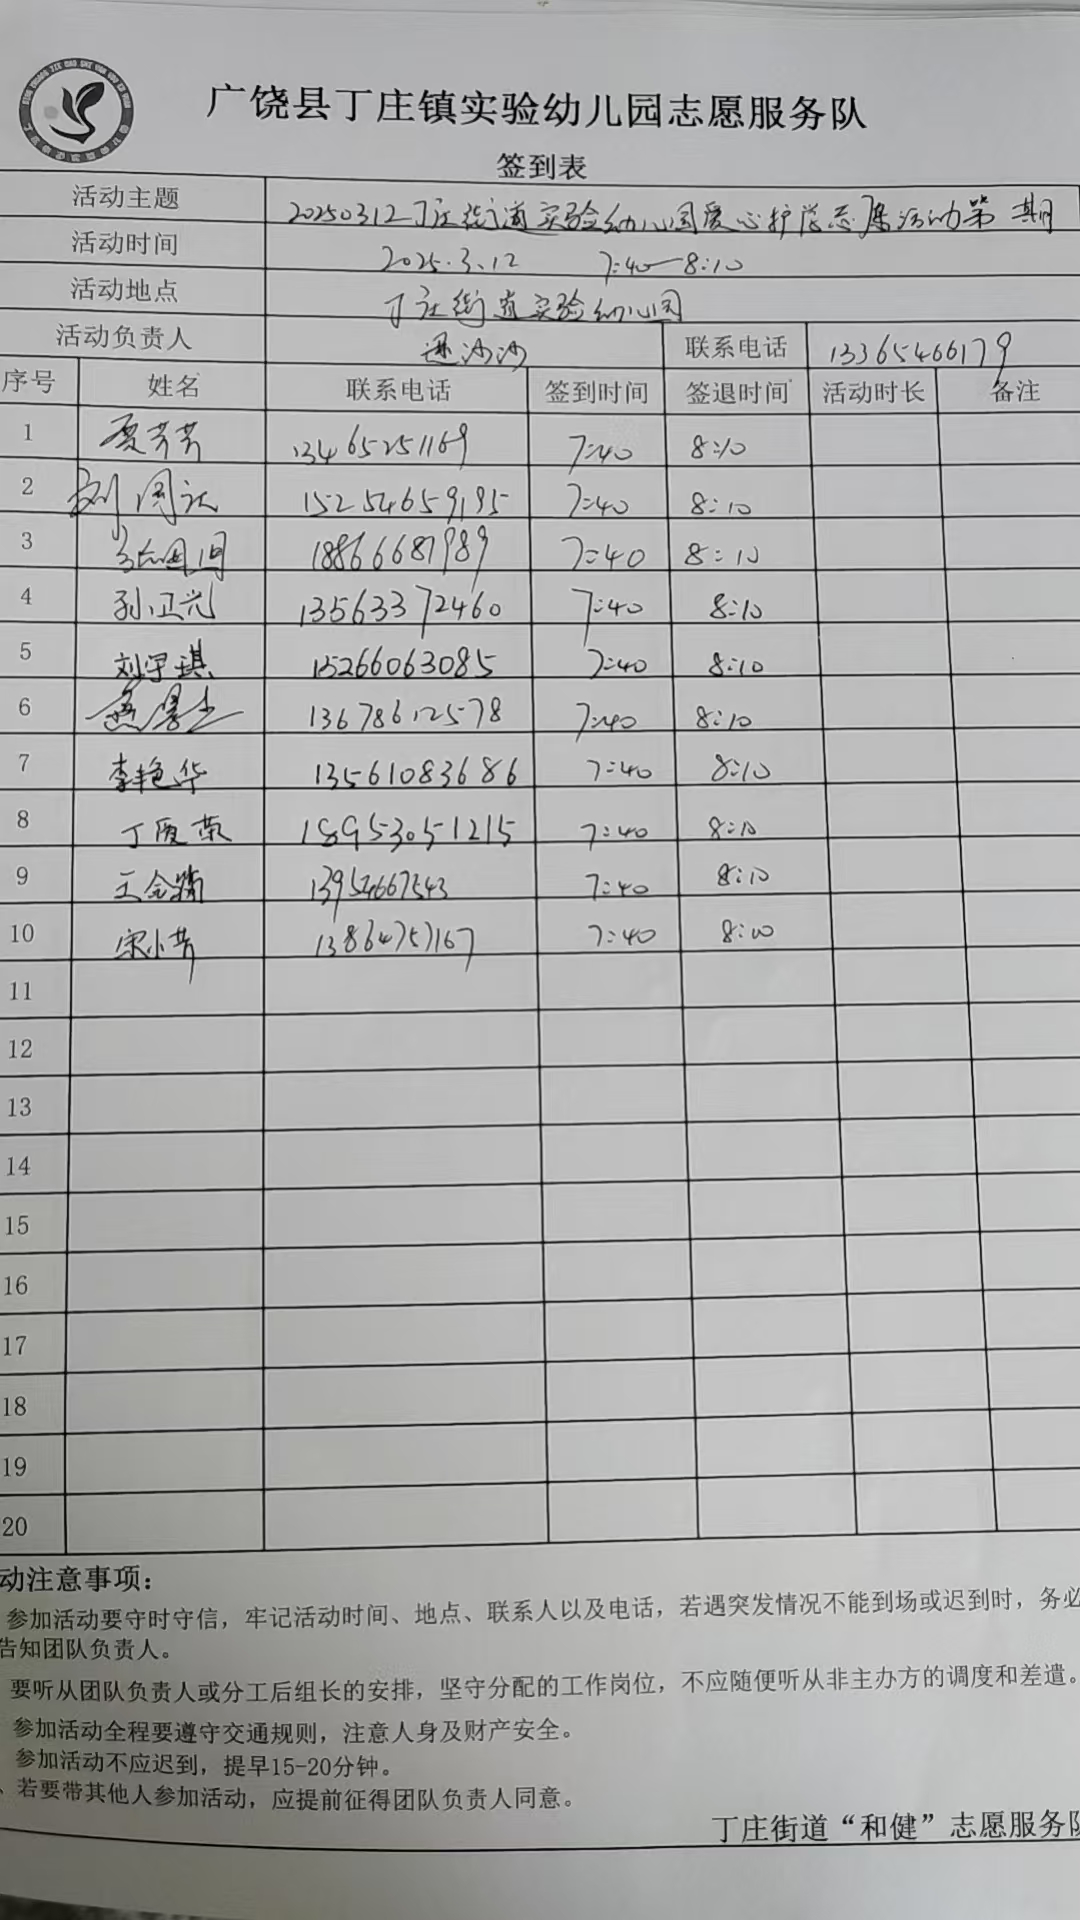 广饶县丁庄镇实验幼儿园志愿服务队
签到表
活动主题 20250312丁庄街道实验幼儿园爱心护学志愿活动第 期
活动时间 2025.3.12 7:40—8:10
活动地点 丁庄街道实验幼儿园
活动负责人 沙沙 联系电话 13365466179
序号 姓名 联系电话 签到时间 签退时间 活动时长 备注
1 夏芳芳 13465251169 7:40 8:10
2 刘 15254659195 7:40 8:10
3 18866681989 7:40 8:10
4 孙卫光 13563372460 7:40 8:10
5 刘宇琪 15266063085 7:40 8:10
6 13678612578 7:40 8:10
7 李艳华 13561083686 7:40 8:10
8 丁爱荣 18953051215 7:40 8:10
9 王金 13954667543 7:40 8:10
10 宋小芳 13864757167 7:40 8:10
11
12
13
14
15
16
17
18
19
20
动注意事项：
参加活动要守时守信，牢记活动时间、地点、联系人以及电话，若遇突发情况不能到场或迟到时，务必
告知团队负责人。
要听从团队负责人或分工后组长的安排，坚守分配的工作岗位，不应随便听从非主办方的调度和差遣。
参加活动全程要遵守交通规则，注意人身及财产安全。
参加活动不应迟到，提早15-20分钟。
、若要带其他人参加活动，应提前征得团队负责人同意。
丁庄街道“和健”志愿服务队